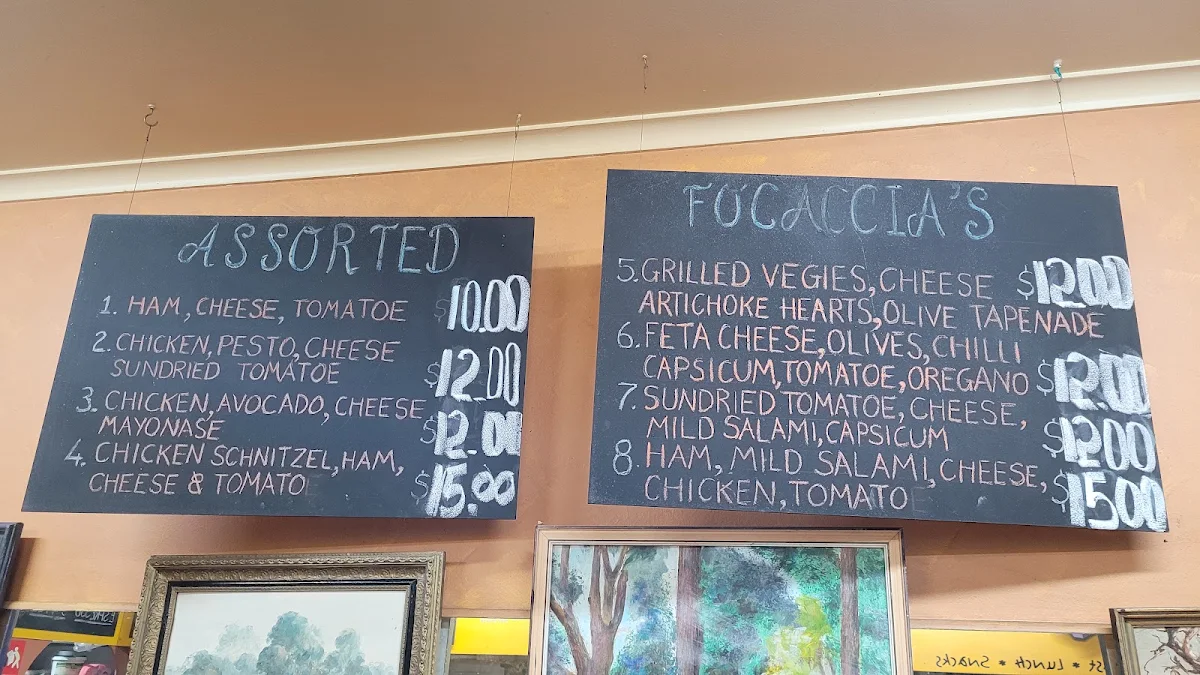 ASSORTED
1. HAM, CHEESE, TOMATOE $10.00
2. CHICKEN, PESTO, CHEESE
SUNDRIED TOMATOE $12.00
3. CHICKEN, AVOCADO, CHEESE
MAYONASE $12.00
4. CHICKEN SCHNITZEL, HAM,
CHEESE & TOMATO $15.00
FOCACCIA'S
5. GRILLED VEGIES, CHEESE $12.00
ARTICHOKE HEARTS, OLIVE TAPENADE
6. FETA CHEESE, OLIVES, CHILLI
CAPSICUM, TOMATOE, OREGANO $12.00
7. SUNDRIED TOMATOE, CHEESE,
MILD SALAMI, CAPSICUM $12.00
8. HAM, MILD SALAMI, CHEESE,
CHICKEN, TOMATO $15.00
st * Lunch * Snacks